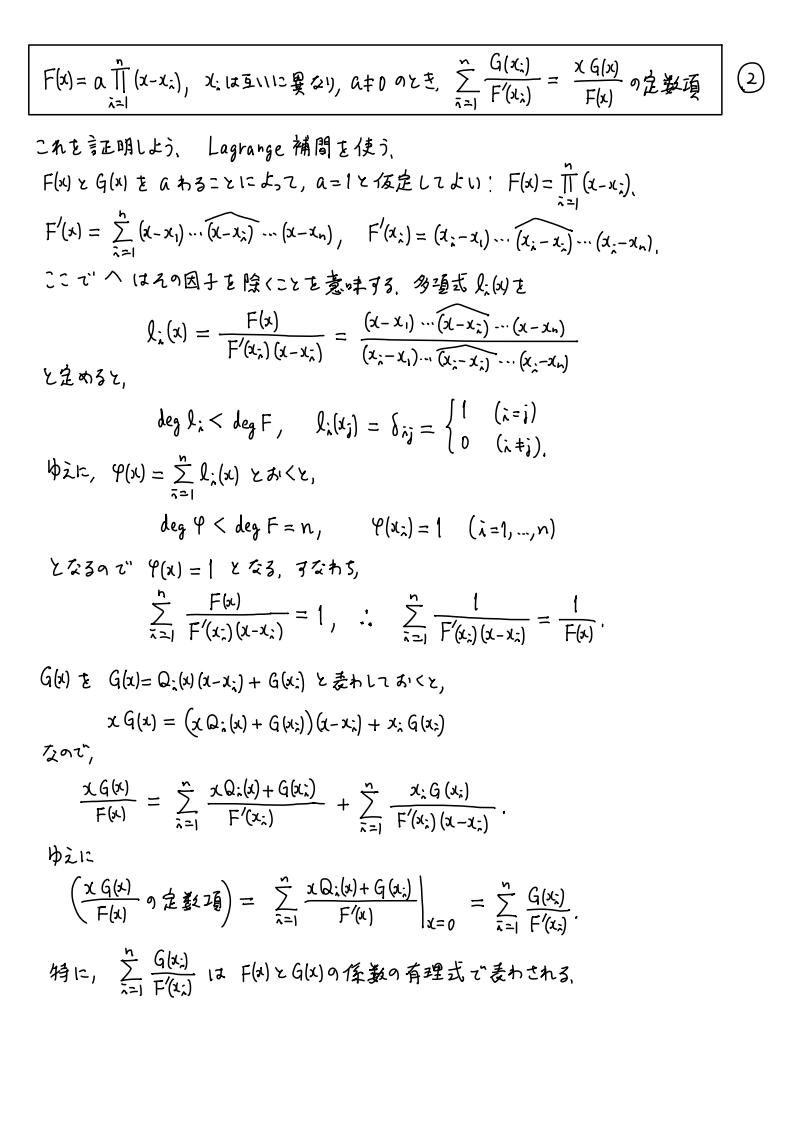 F(x) = a ∏_{i=1}^{n} (x-x_i), x_i は互いに異なり, a≠0 のとき, ∑_{i=1}^{n} G(x_i)/F'(x_i) = xG(x)/F(x) の定数項 ②
これを証明しよう. Lagrange 補間を使う.
F(x) と G(x) を a わることによって, a=1 と仮定してよい: F(x) = ∏_{i=1}^{n} (x-x_i).
F'(x) = ∑_{i=1}^{n} (x-x_1)…\widehat{(x-x_i)}…(x-x_n), F'(x_i) = (x_i-x_1)…\widehat{(x_i-x_i)}…(x_i-x_n).
ここで ^ はその因子を除くことを意味する. 多項式 l_i(x) を
l_i(x) = F(x)/(F'(x_i)(x-x_i)) = ((x-x_1)…\widehat{(x-x_i)}…(x-x_n))/((x_i-x_1)…\widehat{(x_i-x_i)}…(x_i-x_n))
と定めると,
deg l_i < deg F, l_i(x_j) = δ_{ij} = { 1 (i=j) 0 (i≠j).
ゆえに, φ(x) = ∑_{i=1}^{n} l_i(x) とおくと,
deg φ < deg F = n, φ(x_i) = 1 (i=1,…,n)
となるので φ(x) = 1 となる. すなわち,
∑_{i=1}^{n} F(x)/(F'(x_i)(x-x_i)) = 1, ∴ ∑_{i=1}^{n} 1/(F'(x_i)(x-x_i)) = 1/F(x).
G(x) を G(x) = Q_i(x)(x-x_i) + G(x_i) と表わしておくと,
xG(x) = (xQ_i(x) + G(x_i))(x-x_i) + x_i G(x_i)
なので,
xG(x)/F(x) = ∑_{i=1}^{n} (xQ_i(x)+G(x_i))/F'(x_i) + ∑_{i=1}^{n} x_i G(x_i)/(F'(x_i)(x-x_i)).
ゆえに
(xG(x)/F(x) の定数項) = ∑_{i=1}^{n} (xQ_i(x)+G(x_i))/F'(x) |_{x=0} = ∑_{i=1}^{n} G(x_i)/F'(x_i).
特に, ∑_{i=1}^{n} G(x_i)/F'(x_i) は F(x) と G(x) の係数の有理式で表わされる.